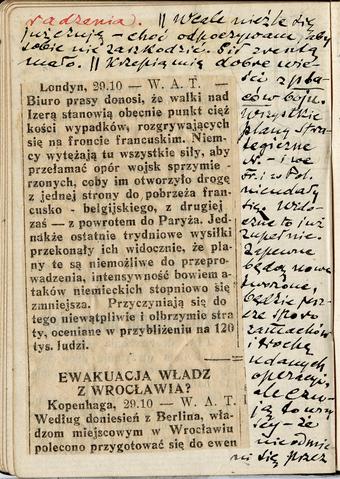 radzenia. || Wcale nieźle się
już czuję – choć odpoczywam, aby
sobie nie zaszkodzić. Sił zresztą
mało. || Krzepią mię dobre wie-
ści z pla-
ców boju.
Wszystkie
plany stra-
tegiczne
N. – i we
Fr. i w Pol.
nie udały
się. Widocz-
ne to już
zupełnie.
Zapewne
będą nowe
tworzone,
będzie jesz-
cze sporo
zamachów
i trochę
udanych
operacyj,
ale czu-
ją to wszy-
scy – że
nie odmie-
ni się przez
Londyn, 29.10 — W. A. T. —
Biuro prasy donosi, że walki nad
Izerą stanowią obecnie punkt cięż
kości wypadków, rozgrywających
się na froncie francuskim. Niem-
cy wytężają tu wszystkie siły, aby
przełamać opór wojsk sprzymie-
rzonych, coby im otworzyło drogę
z jednej strony do pobrzeża fran-
cusko - belgijskiego, z drugiej
zaś — z powrotem do Paryża. Jed-
nakże ostatnie trydniowe wysiłki
przekonały ich widocznie, że pla-
ny te są niemożliwe do przepro-
wadzenia, intensywność bowiem a-
taków niemieckich stopniowo się
zmniejsza. Przyczyniają się do
tego niewątpliwie i olbrzymie stra
ty, oceniane w przybliżeniu na 120
tys. ludzi.
EWAKUACJA WŁADZ
Z WROCŁAWIA?
Kopenhaga, 29.10 — W. A. T.
Według doniesień z Berlina, wła-
dzom miejscowym w Wrocławiu
polecono przygotować się do ewen